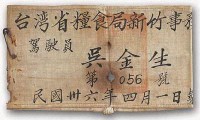 台湾省糧食局新竹事務
駕駛員
吳金生
第056號
民國卅六年四月一日